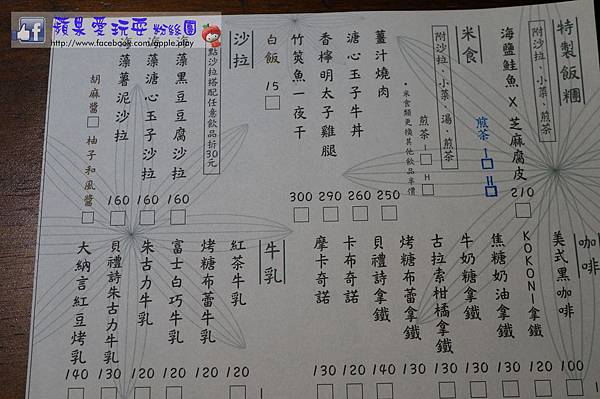 蘋果愛玩耍 粉絲團
http://www.facebook.com/apple.play
特製飯糰
附沙拉、小菜、煎茶
海鹽鮭魚 X 芝麻腐皮 210
煎茶 I H
米食
附沙拉、小菜、湯、煎茶
煎茶 I H
*米食類更換其他飲品半價
薑汁燒肉 250
溏心玉子牛丼 260
香檸明太子雞腿 290
竹筴魚一夜干 300
白飯 15
沙拉
點沙拉搭配任意飲品折30元
海藻黑豆豆腐沙拉 160
海藻溏心玉子沙拉 160
海藻薯泥沙拉 160
胡麻醬 柚子和風醬
咖啡
美式黑咖啡 100
KOKONI拿鐵 120
焦糖奶油拿鐵 120
牛奶糖拿鐵 130
古拉索柑橘拿鐵 130
烤糖布蕾拿鐵 130
貝禮詩拿鐵 140
卡布奇諾 120
摩卡奇諾 130
牛乳
紅茶牛乳 120
烤糖布蕾牛乳 120
富士白巧牛乳 120
朱古力牛乳 120
貝禮詩朱古力牛乳 130
大納言紅豆烤乳 140